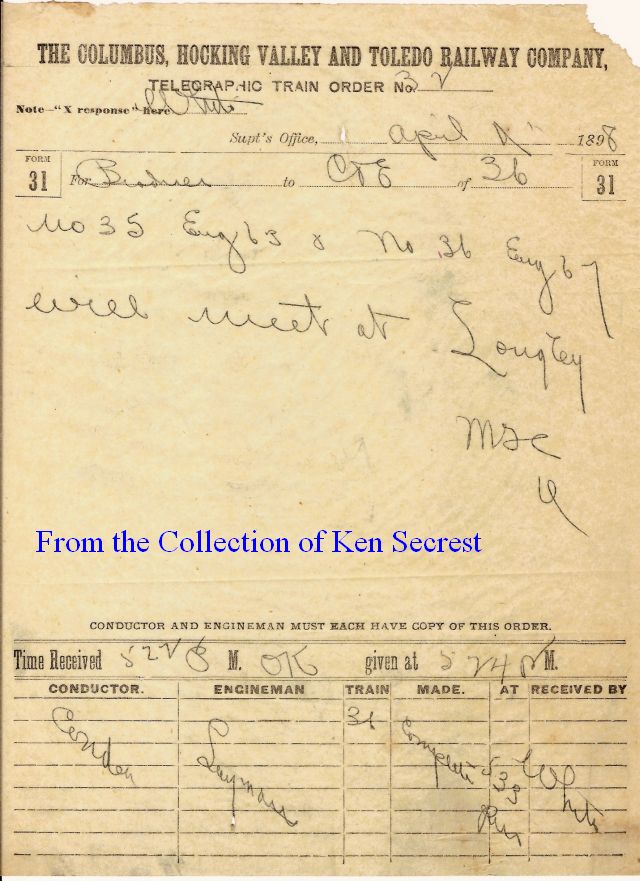 THE COLUMBUS, HOCKING VALLEY AND TOLEDO RAILWAY COMPANY,
TELEGRAPHIC TRAIN ORDER No. 32
Note—"X response" here White
Supt's Office, April 1898
FORM 31 For Bradner to C&E of 36 FORM 31
No 35 Eng 63 & No 36 Eng 67
will meet at Longley
From the Collection of Ken Secrest
CONDUCTOR AND ENGINEMAN MUST EACH HAVE COPY OF THIS ORDER.
Time Received 522 P M. OK given at 524 P M.
CONDUCTOR. ENGINEMAN TRAIN MADE. AT RECEIVED BY
36
Conden Layman Complete 533 White